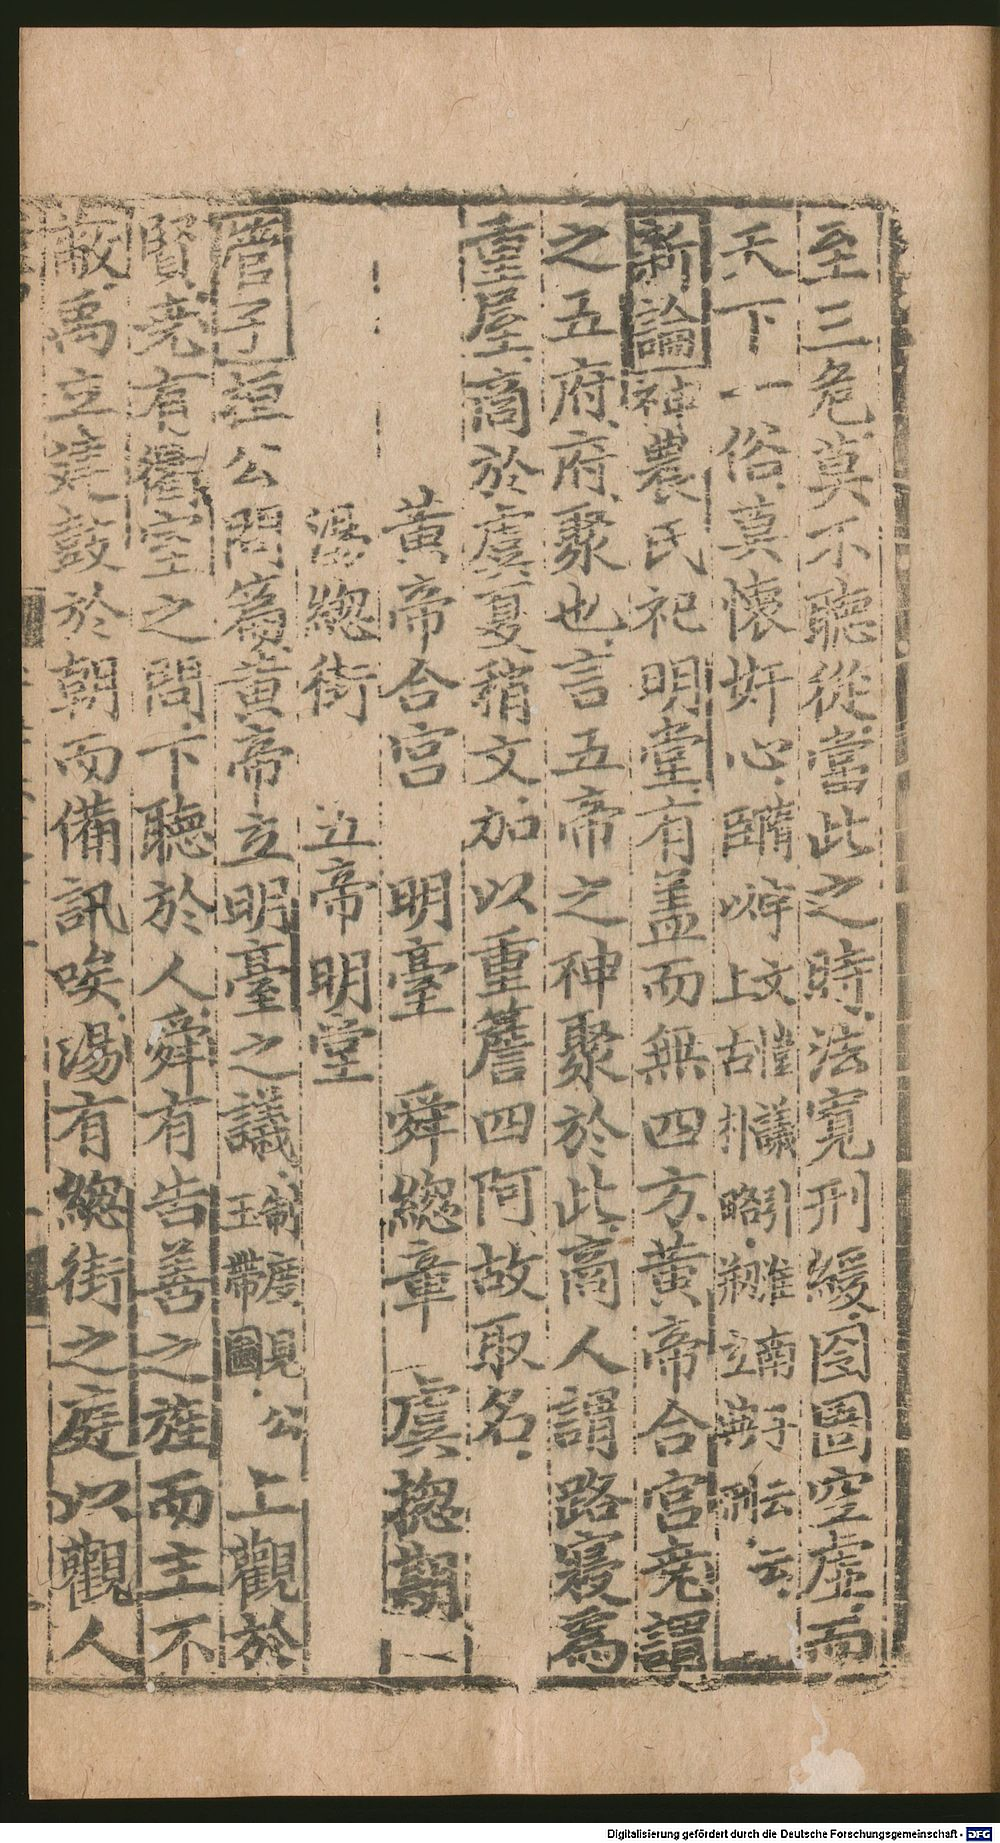 至三危莫不聽從當此之時法寬刑緩囹圄空虛而
天下一俗莫懷奸心隋㟮文 議引淮南子云云
臨以上古 略 並無 
新論神農氏祀明堂有盖而無四方黃帝合宮堯謂
之五府府聚也言五帝之神聚於此商人謂路寢爲
重屋商於虞夏稍文加以重簷四阿故取名
黃帝合宮 明臺 舜緫章 虞揔期
湯緫街 五帝明堂
管子桓公問篇黃帝立明臺之議制度見公
玉帶圖
上觀於
賢堯有衢室之問下聽於人舜有告善之旌而主不
蔽禹立建鼓於朝而備訊唉湯有緫街之庭以觀人
Digitalisierung gefördert durch die Deutsche Forschungsgemeinschaft - DFG